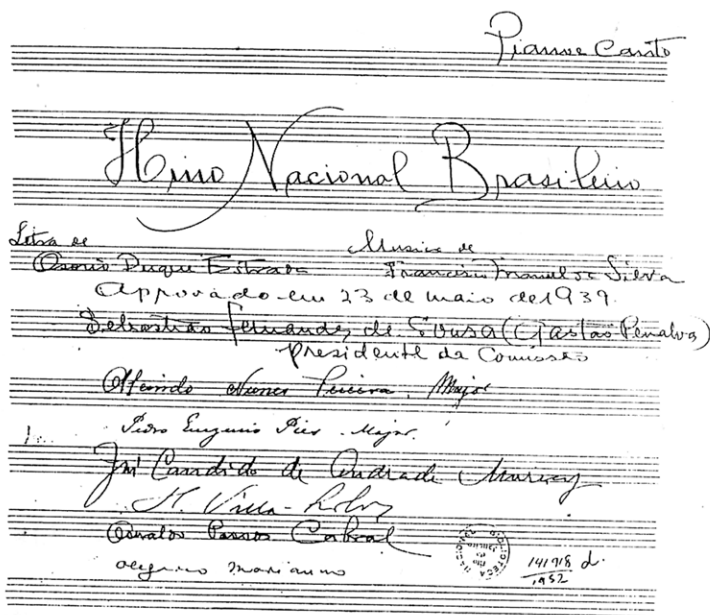 Piano e Canto
Hino Nacional Brasileiro
Letra de Musica de
Osorio Duque Estrada Francisco Manuel da Silva
Approvado em 23 de maio de 1939.
Sebastião Fernandes de Sousa (Gastão Penalva)
Presidente da Comissão
Nunes Pereira, Major
Pedro Eugenio Pies Major.
José Candido de Andrade Muricy
H. Villa-Lobos
Osvaldo Passos Cabral
Olegario Marianno
BIBLIOTECA NACIONAL
141918 d.
1952